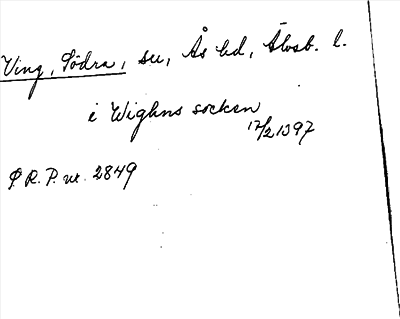 Ving, Södra, sn, Ås hd, Älvsb. l.
i Wighns socken
17/2 1397
R. P. nr. 2849